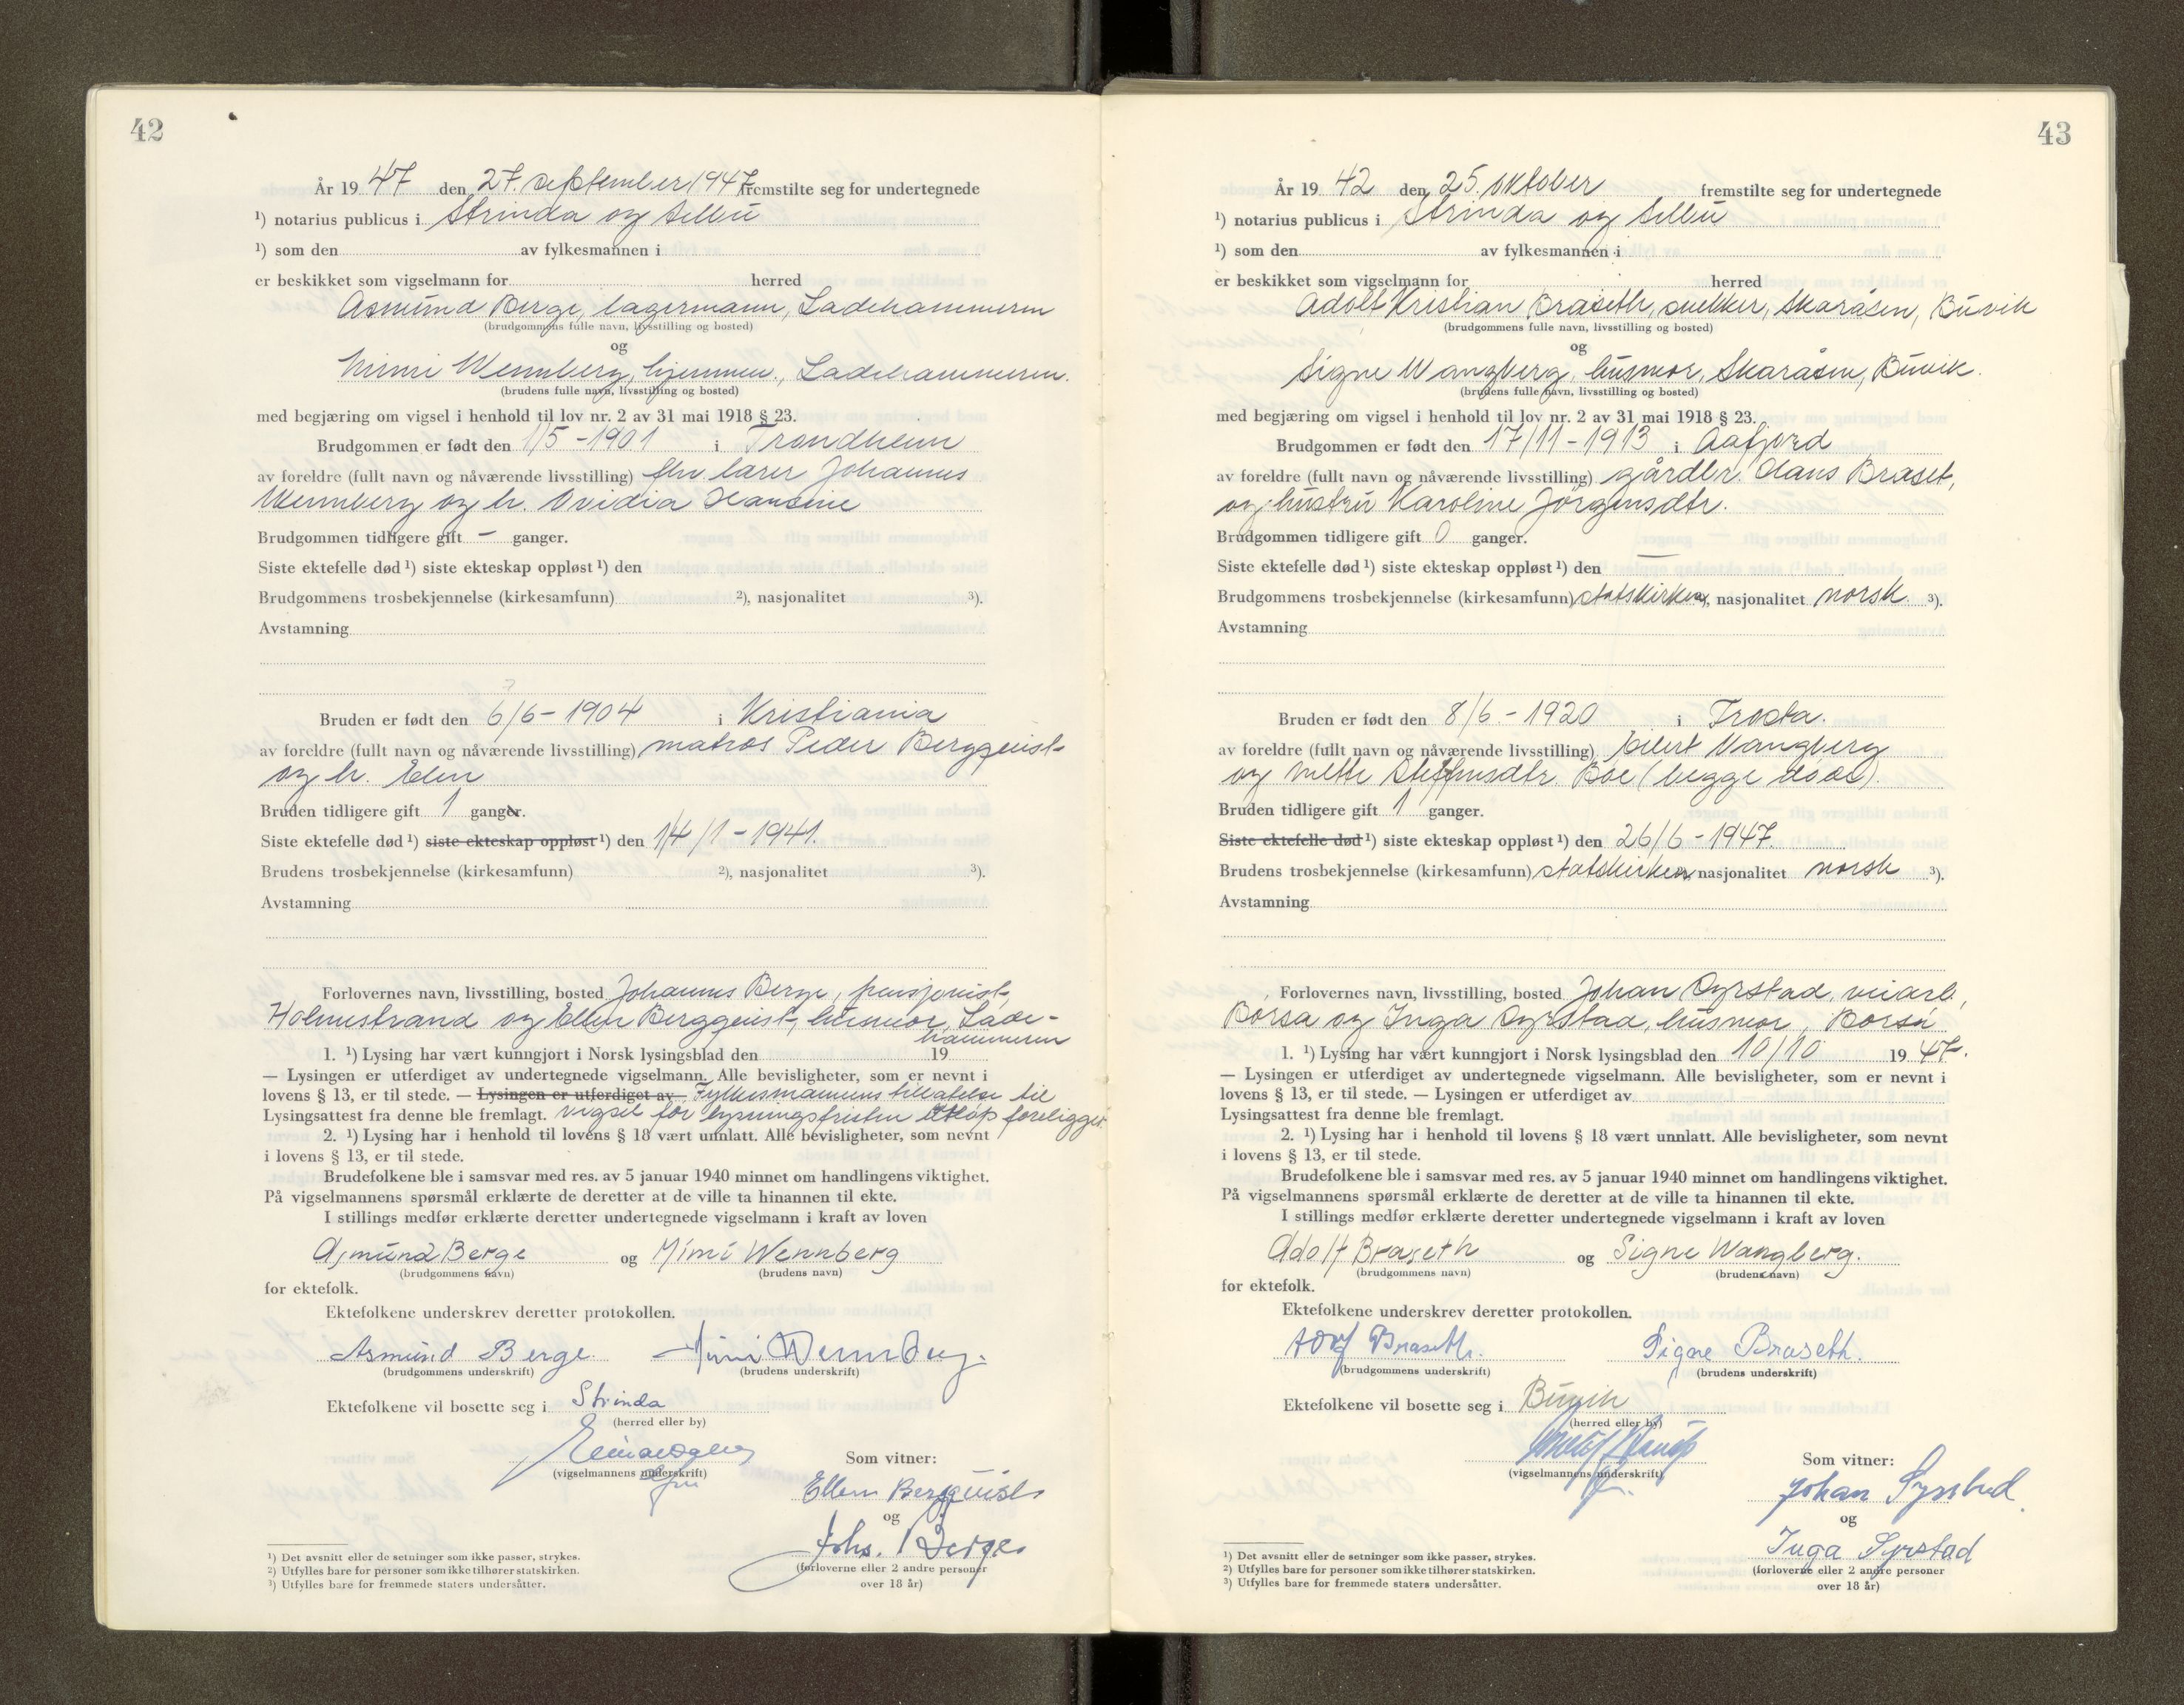 42
År 19 47 den 27. september 1947 fremstilte seg for undertegnede
¹) notarius publicus i Strinda og Selbu
¹) som den av fylkesmannen i
er beskikket som vigselmann for herred
Asmund Berge, lagermann, Ladehammeren
(brudgommens fulle navn, livsstilling og bosted)
og
Mimi Wennberg, hjemmev., Ladehammeren.
(brudens fulle navn, livsstilling og bosted)
med begjæring om vigsel i henhold til lov nr. 2 av 31 mai 1918 § 23.
Brudgommen er født den 1/5 - 1901 i Trondheim
av foreldre (fullt navn og nåværende livsstilling) fhv. lærer Johannes
Wennberg og h. Ovidia Hansine
Brudgommen tidligere gift - ganger.
Siste ektefelle død ¹) siste ekteskap oppløst ¹) den
Brudgommens trosbekjennelse (kirkesamfunn) ²), nasjonalitet ³).
Avstamning
Bruden er født den 6/6 - 1904 i Kristiania
av foreldre (fullt navn og nåværende livsstilling) matros Peder Bergquist
og h. Elen
Bruden tidligere gift 1 ganger.
Siste ektefelle død ¹) siste ekteskap oppløst ¹) den 14/1 - 1941.
Brudens trosbekjennelse (kirkesamfunn) ²), nasjonalitet ³).
Avstamning
Forlovernes navn, livsstilling, bosted Johannes Berge, pensjonist,
Holmestrand og Ellen Bergquist, husmor, Lade-
hammeren
1. ¹) Lysing har vært kunngjort i Norsk lysingsblad den 19
— Lysingen er utferdiget av undertegnede vigselmann. Alle bevisligheter, som er nevnt i
lovens § 13, er til stede. — Lysingen er utferdiget av Fylkesmannens tillatelse til
Lysingsattest fra denne ble fremlagt. vigsel før lysningsfristen utløp foreligger.
2. ¹) Lysing har i henhold til lovens § 18 vært unnlatt. Alle bevisligheter, som nevnt
i lovens § 13, er til stede.
Brudefolkene ble i samsvar med res. av 5 januar 1940 minnet om handlingens viktighet.
På vigselmannens spørsmål erklærte de deretter at de ville ta hinannen til ekte.
I stillings medfør erklærte deretter undertegnede vigselmann i kraft av loven
Asmund Berge og Mimi Wennberg
(brudgommens navn) (brudens navn)
for ektefolk.
Ektefolkene underskrev deretter protokollen.
Asmund Berge. Mimi Wennberg.
(brudgommens underskrift) (brudens underskrift)
Ektefolkene vil bosette seg i Strinda
(herred eller by)
(vigselmannens underskrift)
Som vitner:
Ellen Bergquist
og
Johs. Berge
(forloverne eller 2 andre personer
over 18 år)
¹) Det avsnitt eller de setninger som ikke passer, strykes.
²) Utfylles bare for personer som ikke tilhører statskirken.
³) Utfylles bare for fremmede staters undersåtter.
43
År 19 42 den 25. oktober fremstilte seg for undertegnede
¹) notarius publicus i Strinda og Selbu
¹) som den av fylkesmannen i
er beskikket som vigselmann for herred
Adolf Kristian Braseth, snekker, Skaråsen, Buvik
(brudgommens fulle navn, livsstilling og bosted)
og
Signe Wangberg, husmor, Skaråsen, Buvik.
(brudens fulle navn, livsstilling og bosted)
med begjæring om vigsel i henhold til lov nr. 2 av 31 mai 1918 § 23.
Brudgommen er født den 17/11 - 1913 i Aafjord
av foreldre (fullt navn og nåværende livsstilling) gårdbr. Hans Braset,
og hustru Karoline Jörgensdtr.
Brudgommen tidligere gift 0 ganger.
Siste ektefelle død ¹) siste ekteskap oppløst ¹) den —
Brudgommens trosbekjennelse (kirkesamfunn) statskirken, nasjonalitet norsk ³).
Avstamning
Bruden er født den 8/6. - 1920 i Frosta.
av foreldre (fullt navn og nåværende livsstilling) Eilert Vangberg
og Mette Steffensdtr. Böe (begge döde).
Bruden tidligere gift 1 ganger.
Siste ektefelle død ¹) siste ekteskap oppløst ¹) den 26/6 - 1947.
Brudens trosbekjennelse (kirkesamfunn) statskirken nasjonalitet norsk ³).
Avstamning
Forlovernes navn, livsstilling, bosted Johan Syrstad, veiarb.,
Börsa og Inga Syrstad, husmor, Börsa
1. ¹) Lysing har vært kunngjort i Norsk lysingsblad den 10/10 19 47.
— Lysingen er utferdiget av undertegnede vigselmann. Alle bevisligheter, som er nevnt i
lovens § 13, er til stede. — Lysingen er utferdiget av
Lysingsattest fra denne ble fremlagt.
2. ¹) Lysing har i henhold til lovens § 18 vært unnlatt. Alle bevisligheter, som nevnt
i lovens § 13, er til stede.
Brudefolkene ble i samsvar med res. av 5 januar 1940 minnet om handlingens viktighet.
På vigselmannens spørsmål erklærte de deretter at de ville ta hinannen til ekte.
I stillings medfør erklærte deretter undertegnede vigselmann i kraft av loven
Adolf Braseth og Signe Wangberg.
(brudgommens navn) (brudens navn)
for ektefolk.
Ektefolkene underskrev deretter protokollen.
Adolf Braseth. Signe Braseth.
(brudgommens underskrift) (brudens underskrift)
Ektefolkene vil bosette seg i Buvik
(herred eller by)
(vigselmannens underskrift)
Som vitner:
Johan Syrstad
og
Inga Syrstad
(forloverne eller 2 andre personer
over 18 år)
¹) Det avsnitt eller de setninger som ikke passer, strykes.
²) Utfylles bare for personer som ikke tilhører statskirken.
³) Utfylles bare for fremmede staters undersåtter.